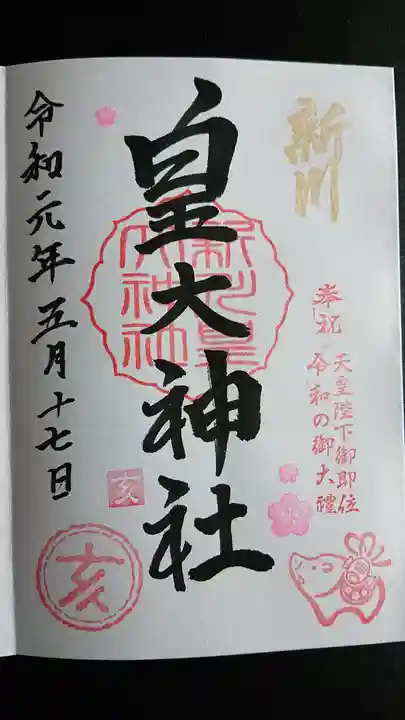 新川
奉祝
天皇陛下御即位
令和の御大禮
皇大神社
新川皇
大神社
亥
令和元年五月十七日
亥